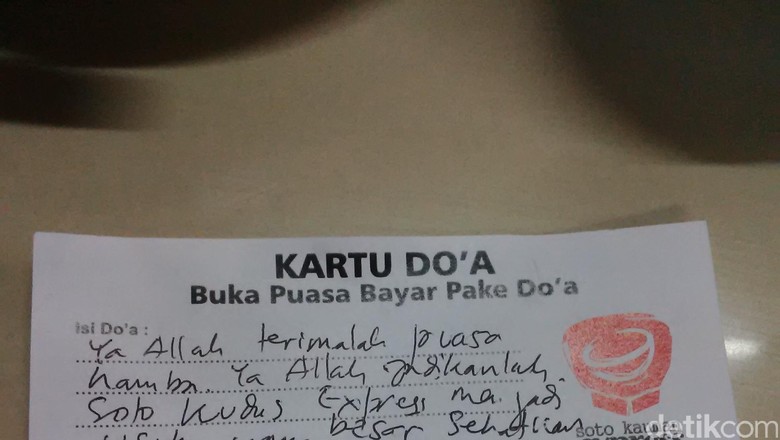 KARTU DO'A
Buka Puasa Bayar Pake Do'a
Isi Do'a :
Ya Allah terimalah puasa
hamba. Ya Allah jadikanlah
Soto Kudus Express menjadi
besar
soto
detikcom